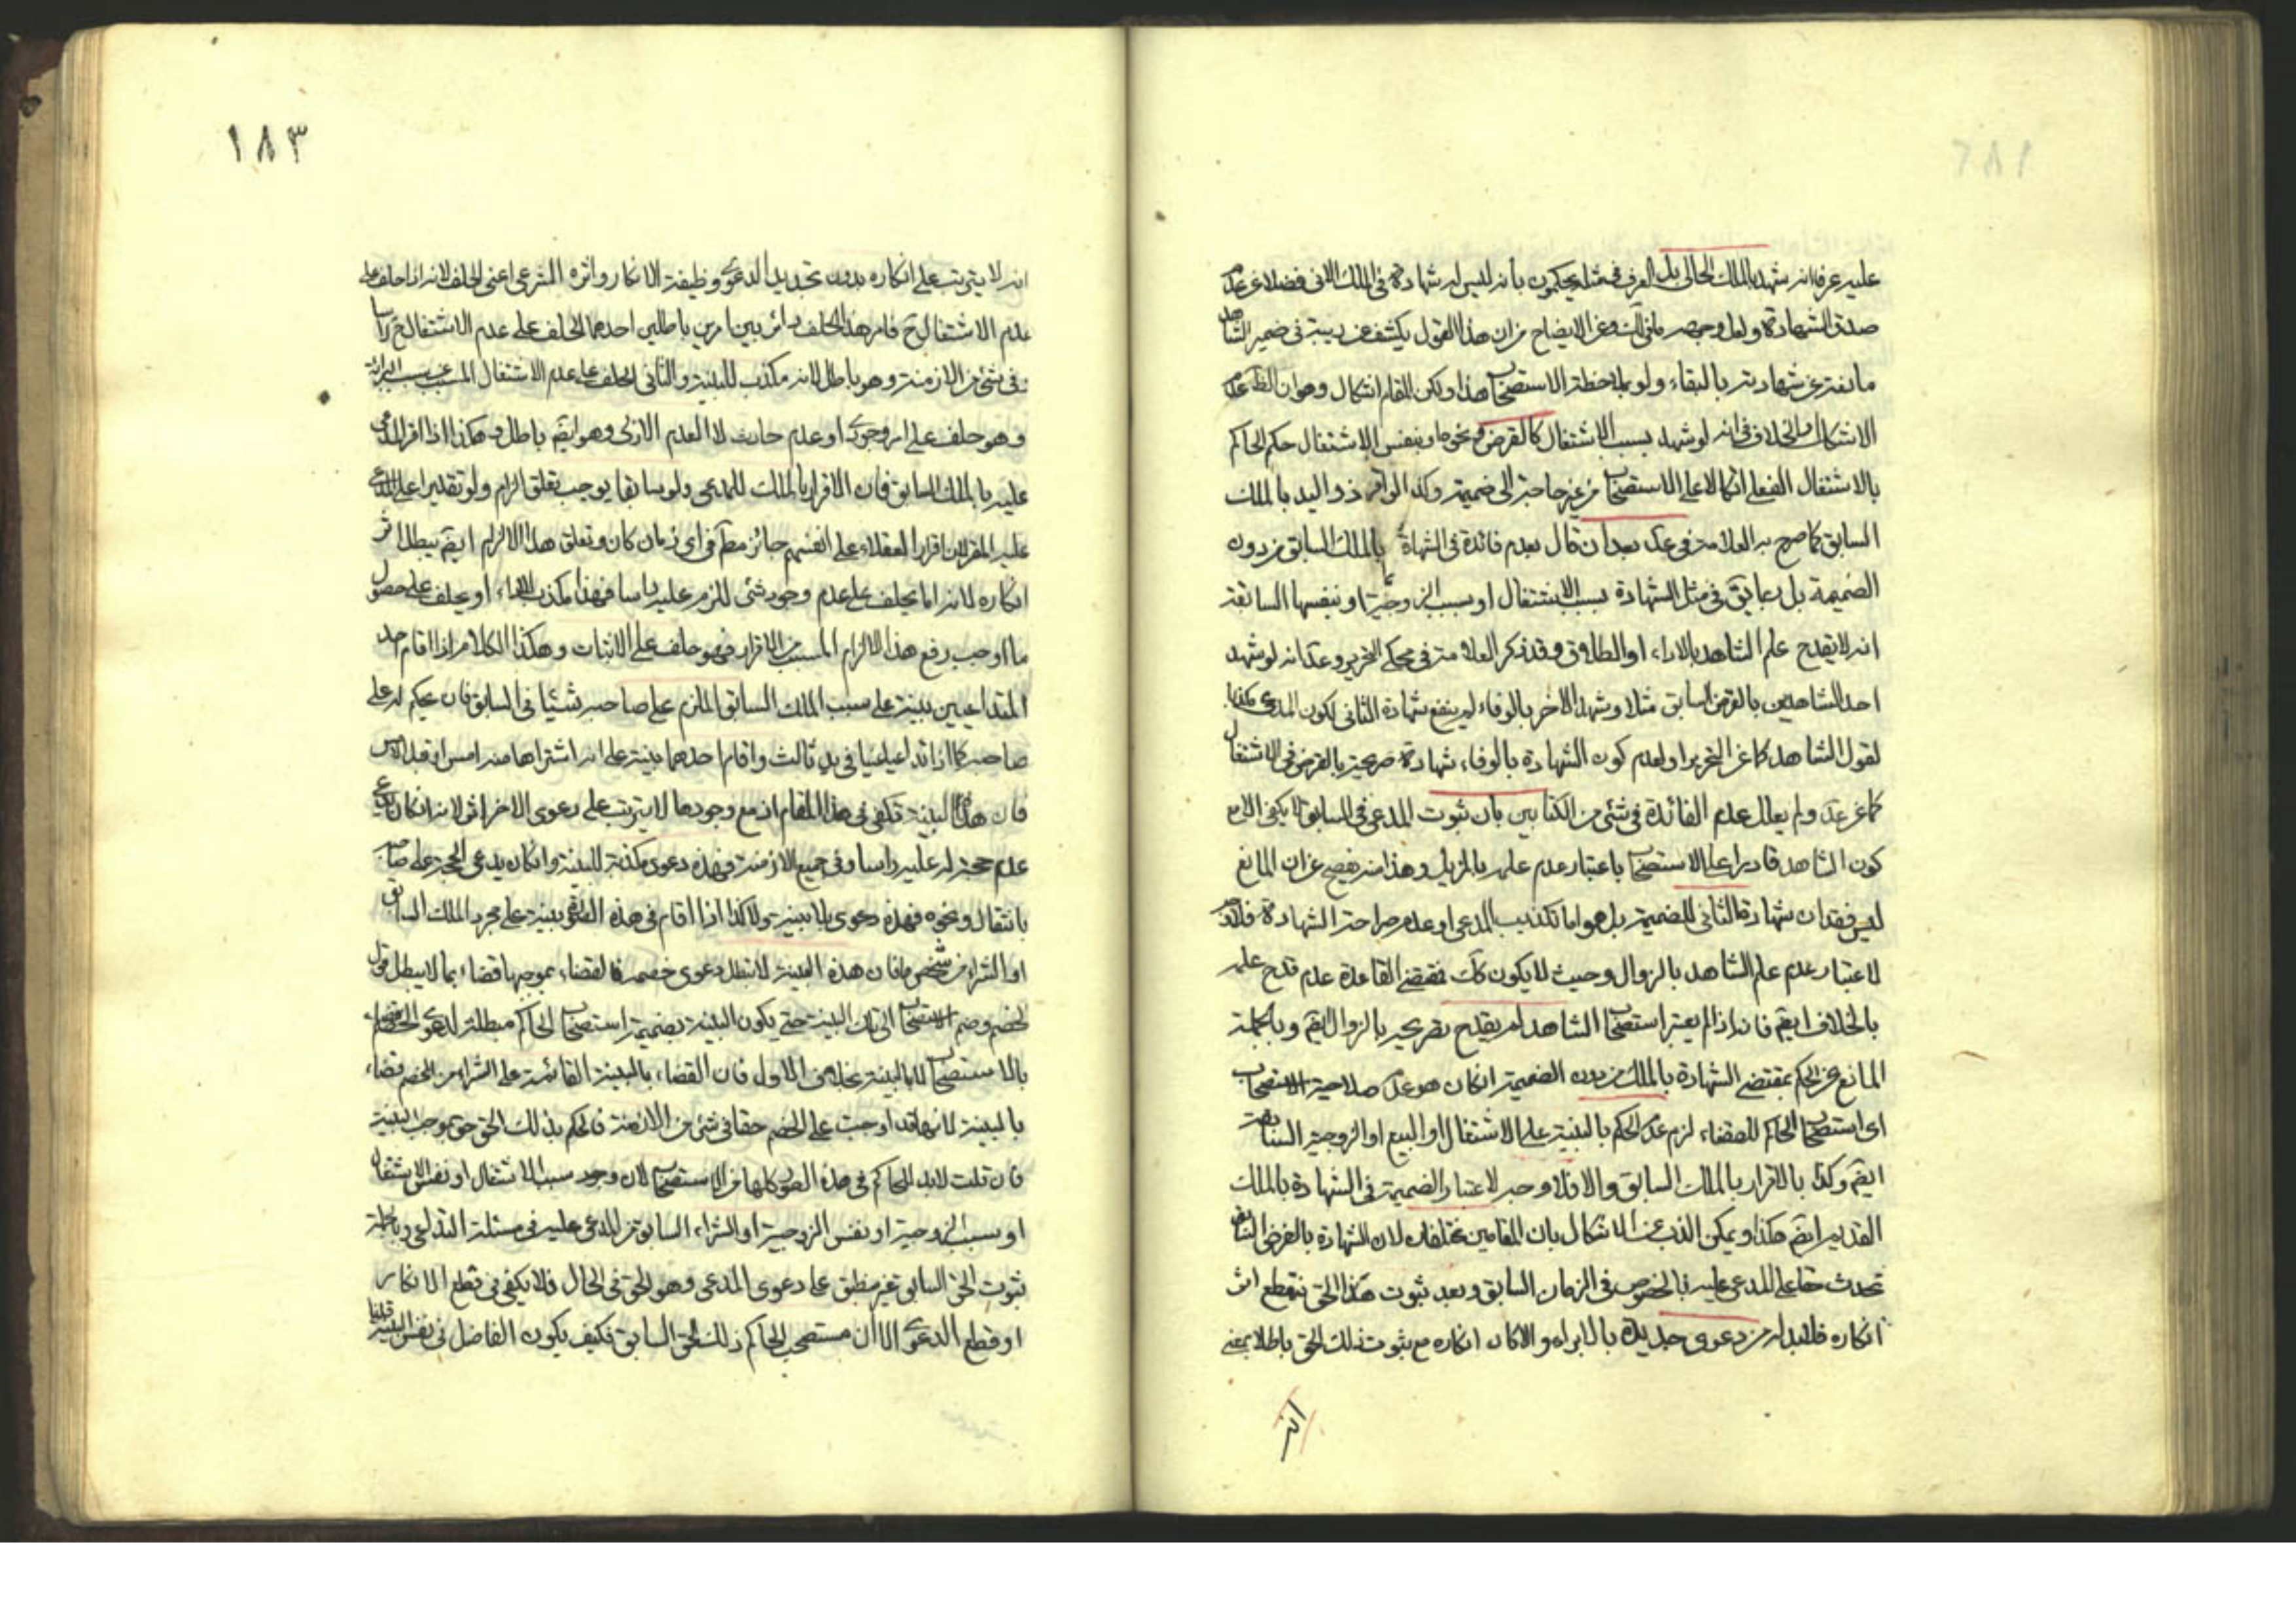 عليه عرفا انه شهد بالملك الحالى بل العرف فى مثله يحكمون بانه ليس له شهادة فى الملك الانى فضلا عن عدم
صدق الشهادة ولعل وجهه ما فى لك وعن الايضاح من ان هذا القول يكشف عن ريبة فى ضمير الشاهد
مانعة عن شهادته بالبقاء ولو بملاحظة الاستصحاب هذا ولكن المقام اشكال وهو ان الظ عدم
الاشكال بل الخلاف فى انه لو شهد بسبب الاشتغال كالقرض ونحوه او بنفس الاشتغال حكم الحاكم
بالاشتغال الفعلى اتكالا على الاستصحاب من غير حاجة الى ضميمة وكذا لو اقر ذو اليد بالملك
السابق كما صرح به العلامة فى عد بعد ان قال بعدم فائدة فى الشهادة بالملك السابق من دون
الضميمة بل ربما يق فى مثل الشهادة بسبب الاشتغال او بسبب الزوجية او بنفسها السابقة
انه لا يقدح علم الشاهد بالاداء او الطلاق وقد ذكر العلامة فى محكى التحرير وعد انه لو شهد
احد الشاهدين بالقرض السابق مثلا وشهد الاخر بالوفاء لم ينفع شهادة الثانى لكون المدعى مكذبا
لقول الشاهد كما عن التحرير او لعدم كون الشهادة بالوفاء شهادة صريحة بالقرض فى الاشتغال
كما عن عد ولم يعلل عدم الفائدة فى شئ من الكتابين بان ثبوت المدعى فى السابق لا يكفى الا مع
كون الشاهد قادرا على الاستصحاب باعتبار عدم علمه بالمزيل وهذا منه يفصح عن ان المانع
ليس فقدان شهادة الثانى للضميمة بل هو اما تكذيب المدعى او عدم صراحة الشهادة فلا وجه
لاعتبار عدم علم الشاهد بالزوال وحيث لا يكون كك فمقتضى القاعدة عدم قدح علمه
بالخلاف ايضم فانه اذا لم يعتبر استصحاب الشاهد لم يقدح تصريحه بالزوال ايضم وبالجملة
المانع عن الحكم بمقتضى الشهادة بالملك من دون الضميمة ان كان هو عدم صلاحية الاستصحاب
اى استصحاب الحاكم للقضاء لزم عدم الحكم بالبينة على الاشتغال او البيع او الزوجية السابقة
ايضم وكذا بالاقرار بالملك السابق والا فلا وجه لاعتبار الضميمة فى الشهادة بالملك
القديم ايضم هكذا ويمكن الذب عن الاشكال بان المقامين مختلفان لان الشهادة بالقرض السابق
تحدث حقا على المدعى عليه بالخصوص فى الزمان السابق وبعد ثبوت هذا الحق ينقطع اثر
انكاره فلا بد له من دعوى جديدة بالابراء والا كان انكاره مع ثبوت ذلك الحق باطلا بمعنى
انه
١٨٣
انه لا يترتب على انكاره بدون تجديد الدعوى وظيفة الانكار واثره الشرعى اعنى الحلف لانه اذا حلف على
عدم الاشتغال ح فامر هذا الحلف دائر بين امرين باطلين احدهما الحلف على عدم الاشتغال ح راسا
فى شئ من الازمنة وهو باطل لانه مكذب للبينة والثانى الحلف على عدم الاشتغال المسبب عن سبب البرائة
وهو حلف على امر وجودى او عدم حادث لا العدم الازلى وهو ايضم باطل وهكذا اذا اقر المدعى
عليه بالملك السابق فان الاقرار بالملك للمدعى ولو سابقا يوجب تعلق الزام ولو تقديرا على المدعى
عليه المقر لان اقرار العقلاء على انفسهم جائز مطم فى اى زمان كان وتعلق هذا الالزام ايضم يبطل اثر
انكاره لانه اما يحلف على عدم وجود شئ للزم عليه راسا فهذا مكذب للاقرار او يحلف على حصول
ما اوجب رفع هذا الالزام المسبب من الاقرار فهو حلف على الاثبات وهكذا الكلام اذا اقام احد
المتداعيين بينة على سبب الملك السابق الملزم على صاحبه شيئا فى السابق فان يحكم له على
صاحبه كما اذا تداعيا عينا فى يد ثالث واقام احدهما بينة على انه اشتراها منه امس او قبل امس
فان هذه البينة تكفى فى هذا المقام اذ مع وجودها لا يترتب على دعوى الاخر اثر لانه ان كان يدعى
عدم حجة له عليه راسا وفى جميع الازمنة فهذه دعوى مكذبة للبينة وان كان يدعى الحجة على صاحبه
بانتقال ونحوه فهذه دعوى بلا بينة ولا كذا اذا اقام فى هذه الفرض بينة على مجرد الملك السابق
او الشراء من شخص ما فان هذه البينة لا تبطل دعوى خصمه فالقضاء بموجبها قضاء بما لا يبطل قول
الخصم وضم الاستصحاب الى تلك البينة حتى يكون البينة بضميمة استصحاب الحاكم مبطلة لدعوى الخصم قضاء
بالاستصحاب لا بالبينة بخلاف الاول فان القضاء بالبينة القائمة على الشراء من الخصم قضاء
بالبينة لانها قد اوجبت على الخصم حقا فى شئ من الازمنة فالحكم بذلك الحق حق بموجب البينة
فان قلت لابد للحاكم فى هذه الصور كلها من الاستصحاب لان وجود سبب الاشتغال او نفس الاشتغال
او سبب الزوجية او نفس الزوجية او الشراء السابق من المدعى عليه فى مسئلة التداعى وبالجملة
ثبوت الحق السابق غير منطبق على دعوى المدعى وهو الحق فى الحال فلا يكفى فى قطع الانكار
او قطع الدعوى الا ان مستصحب الحاكم ذلك الحق السابق فكيف يكون الفاضل نفس البينة قلنا